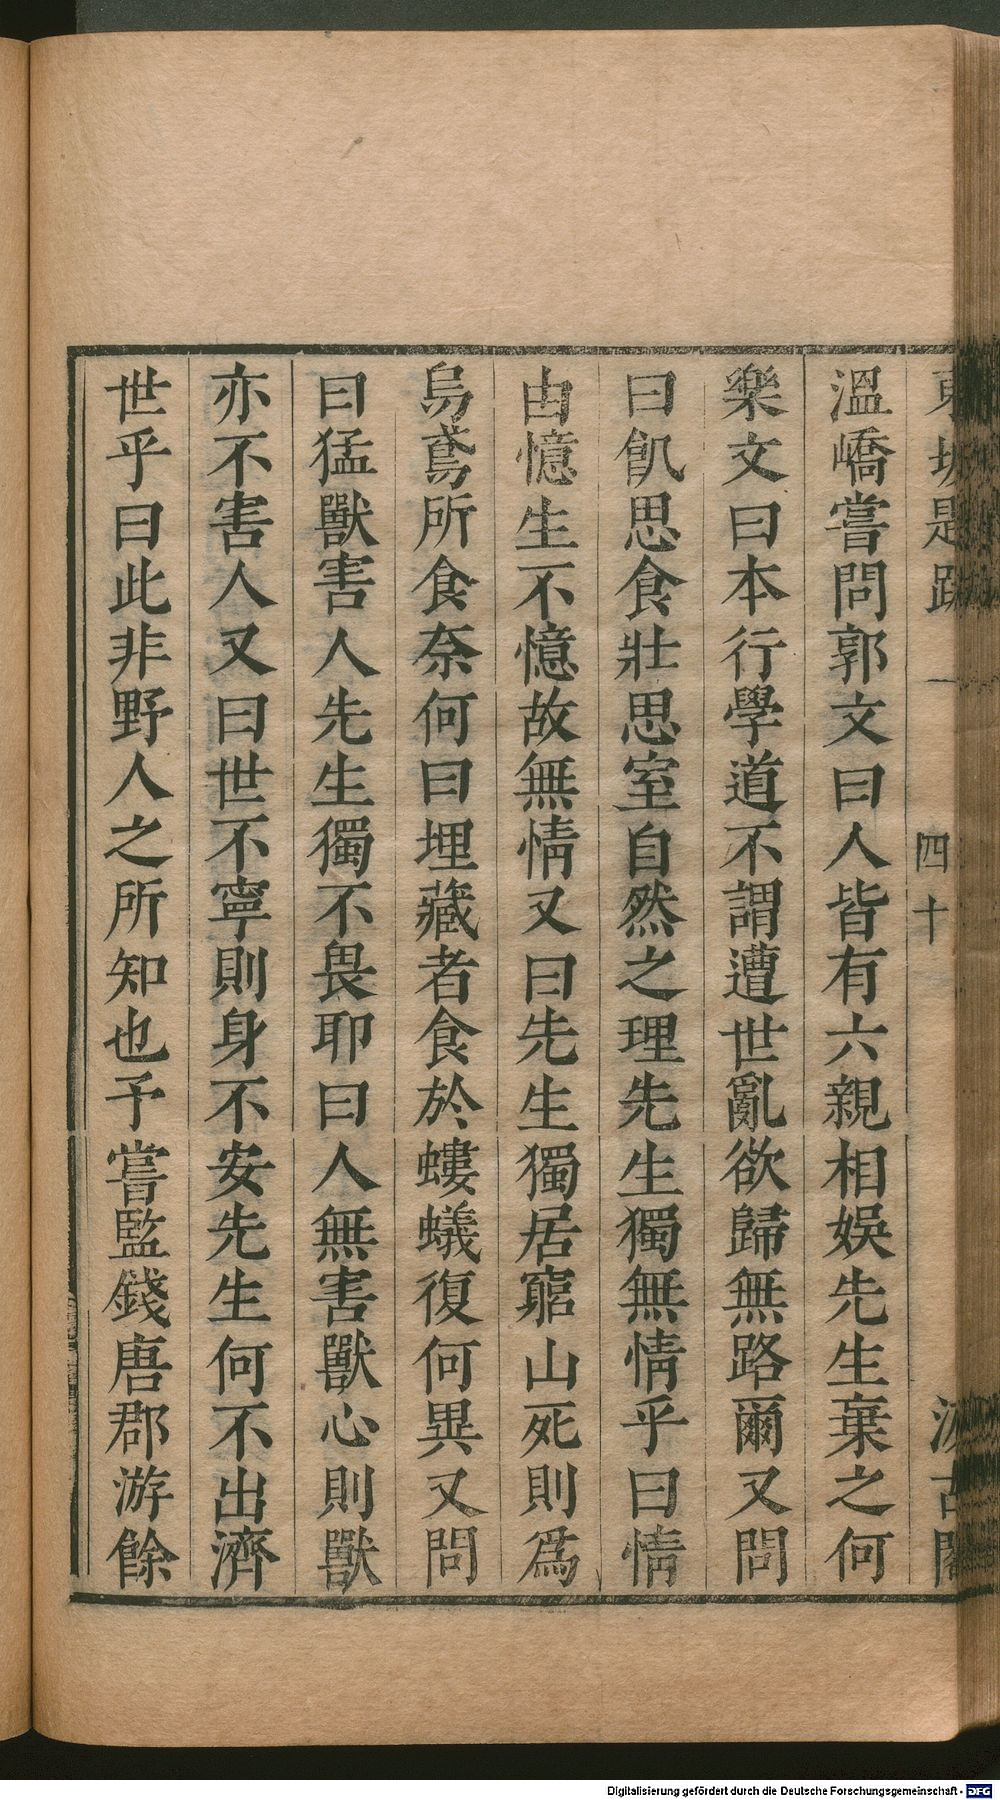 東坡題跋 一 四十 汲古閣
溫嶠嘗問郭文曰人皆有六親相娛先生棄之何
樂文曰本行學道不謂遭世亂欲歸無路爾又問
曰飢思食壯思室自然之理先生獨無情乎曰情
由憶生不憶故無情又曰先生獨居窮山死則爲
烏鳶所食奈何曰埋藏者食於螻蟻復何異又問
曰猛獸害人先生獨不畏耶曰人無害獸心則獸
亦不害人又曰世不寧則身不安先生何不出濟
世乎曰此非野人之所知也予嘗監錢唐郡游餘
Digitalisierung gefördert durch die Deutsche Forschungsgemeinschaft - DFG